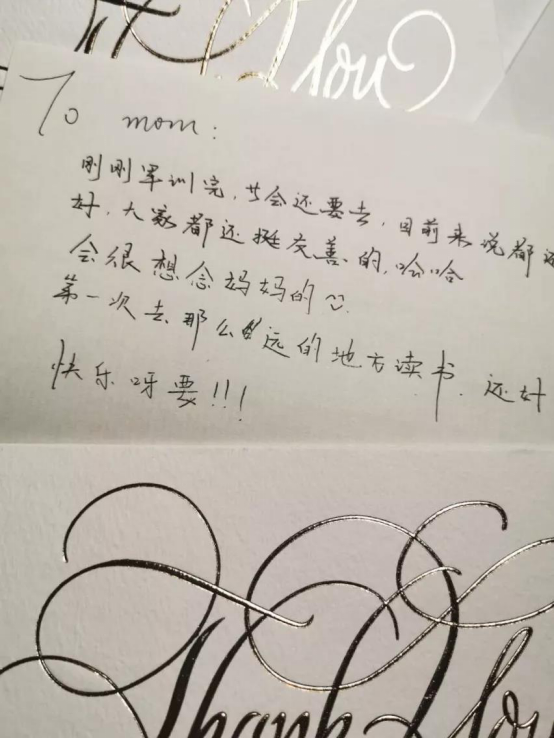 You
To mom:
刚刚军训完,廿会还要去,目前来说都
好,大家都还挺友善的,哈哈
会很想念妈妈的
第一次去那么远的地方读书.还好
快乐呀要!!!
Thank You